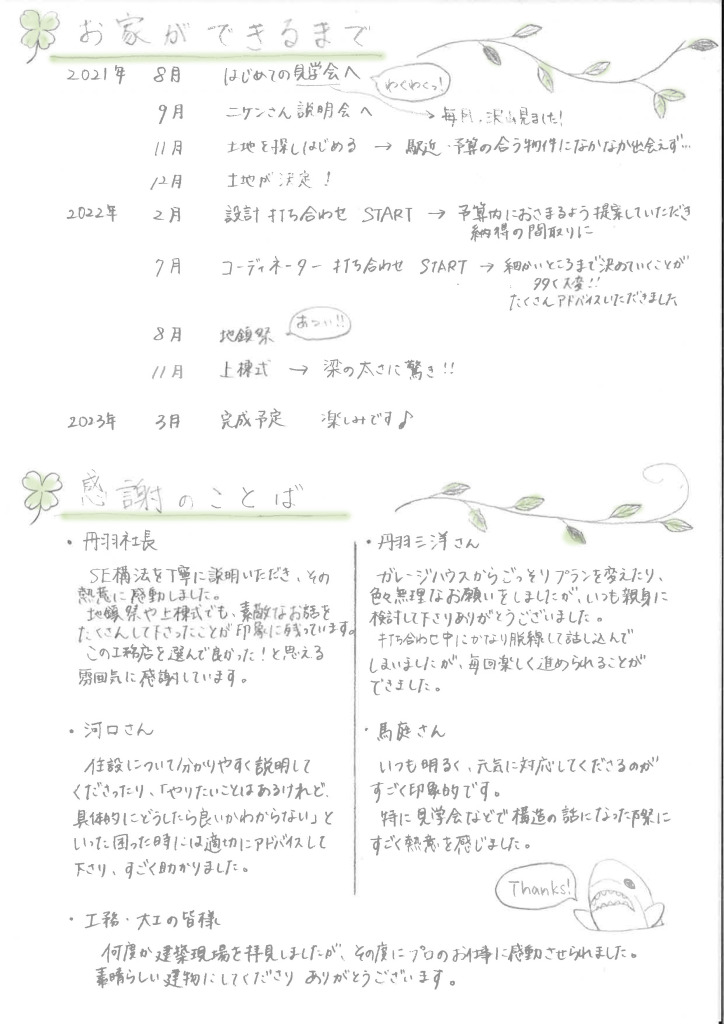 お家ができるまで
2021年 8月 はじめての見学会へ わくわくっ!
9月 ニケンさん説明会へ → 毎月、沢山見ました!
11月 土地を探しはじめる → 駅近・予算の合う物件になかなか出会えず…
12月 土地が決定!
2022年 2月 設計打ち合わせ START → 予算内におさまるよう提案していただき
納得の間取りに
7月 コーディネーター打ち合わせ START → 細かいところまで決めていくことが
多く大変!!
たくさんアドバイスいただきました
8月 地鎮祭 あつい!!
11月 上棟式 → 梁の太さに驚き!!
2023年 3月 完成予定 楽しみです♪
感謝のことば
・丹羽社長
SE構法を丁寧に説明いただき、その
熱意に感動しました。
地鎮祭や上棟式でも、素敵なお話を
たくさんして下さったことが印象に残っています。
この工務店を選んで良かった!と思える
雰囲気に感謝しています。
・丹羽三洋さん
ガレージハウスからごっそりプランを変えたり、
色々無理なお願いをしましたが、いつも親身に
検討して下さりありがとうございました。
打ち合わせ中にかなり脱線して話し込んで
しまいましたが、毎回楽しく進められることが
できました。
・河口さん
住設について分かりやすく説明して
くださったり、「やりたいことはあるけれど、
具体的にどうしたら良いかわからない」と
いった困った時には適切にアドバイスして
下さり、すごく助かりました。
・馬庭さん
いつも明るく、元気に対応してくださるのが
すごく印象的です。
特に見学会などで構造の話になった際に
すごく熱意を感じました。
Thanks!
・工務・大工の皆様
何度か建築現場を拝見しましたが、その度にプロのお仕事に感動させられました。
素晴らしい建物にしてくださり ありがとうございます。